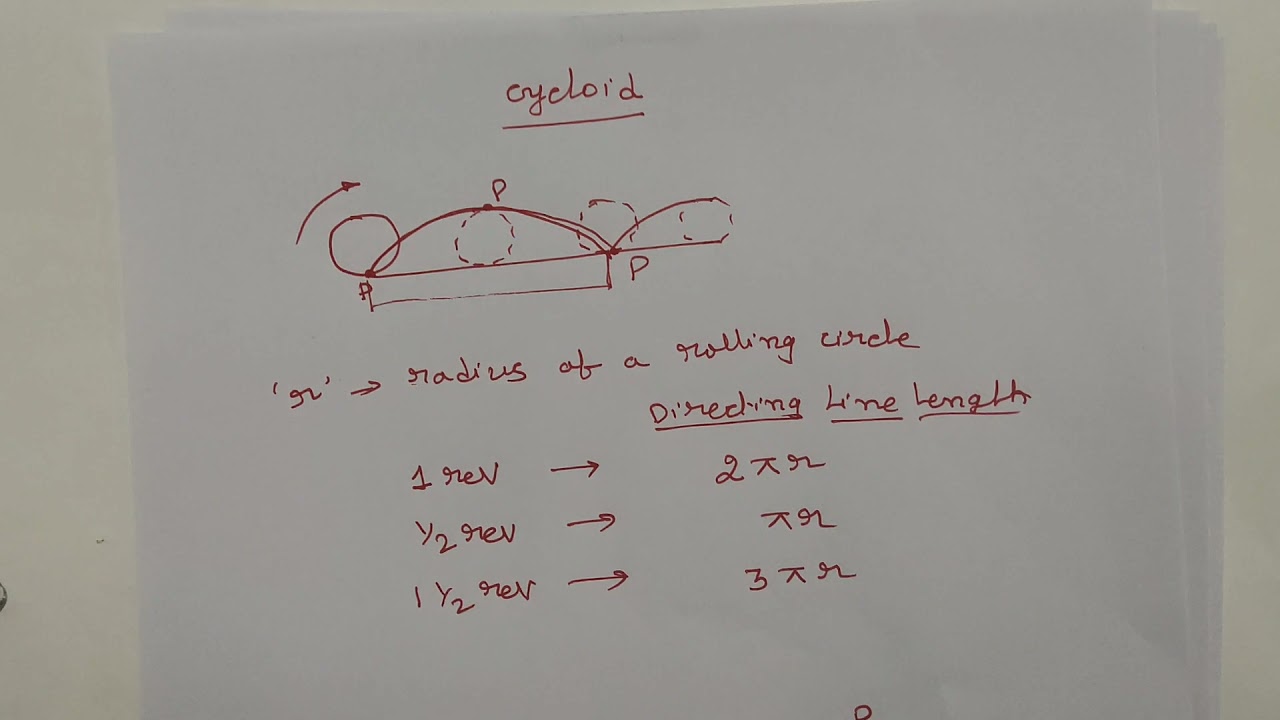 cycloid
P
P
P
'r' → radius of a rolling circle
Directing Line Length
1 rev → 2πr
1/2 rev → πr
1 1/2 rev → 3πr